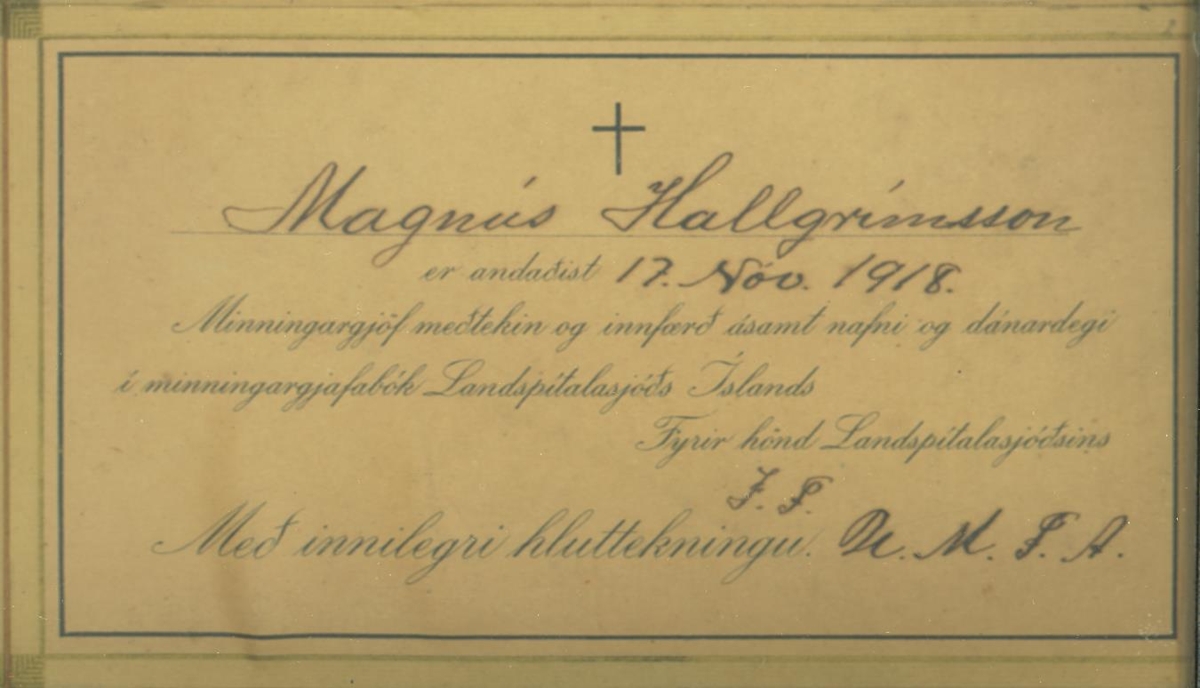 Magnús Hallgrímsson
er andaðist 17. Nóv. 1918.
Minningargjöf meðtekin og innfærð ásamt nafni og dánardegi
í minningargjafabók Landspítalasjóðs Íslands
Fyrir hönd Landspítalasjóðsins
J. F.
Með innilegri hluttekningu. U. M. F. A.